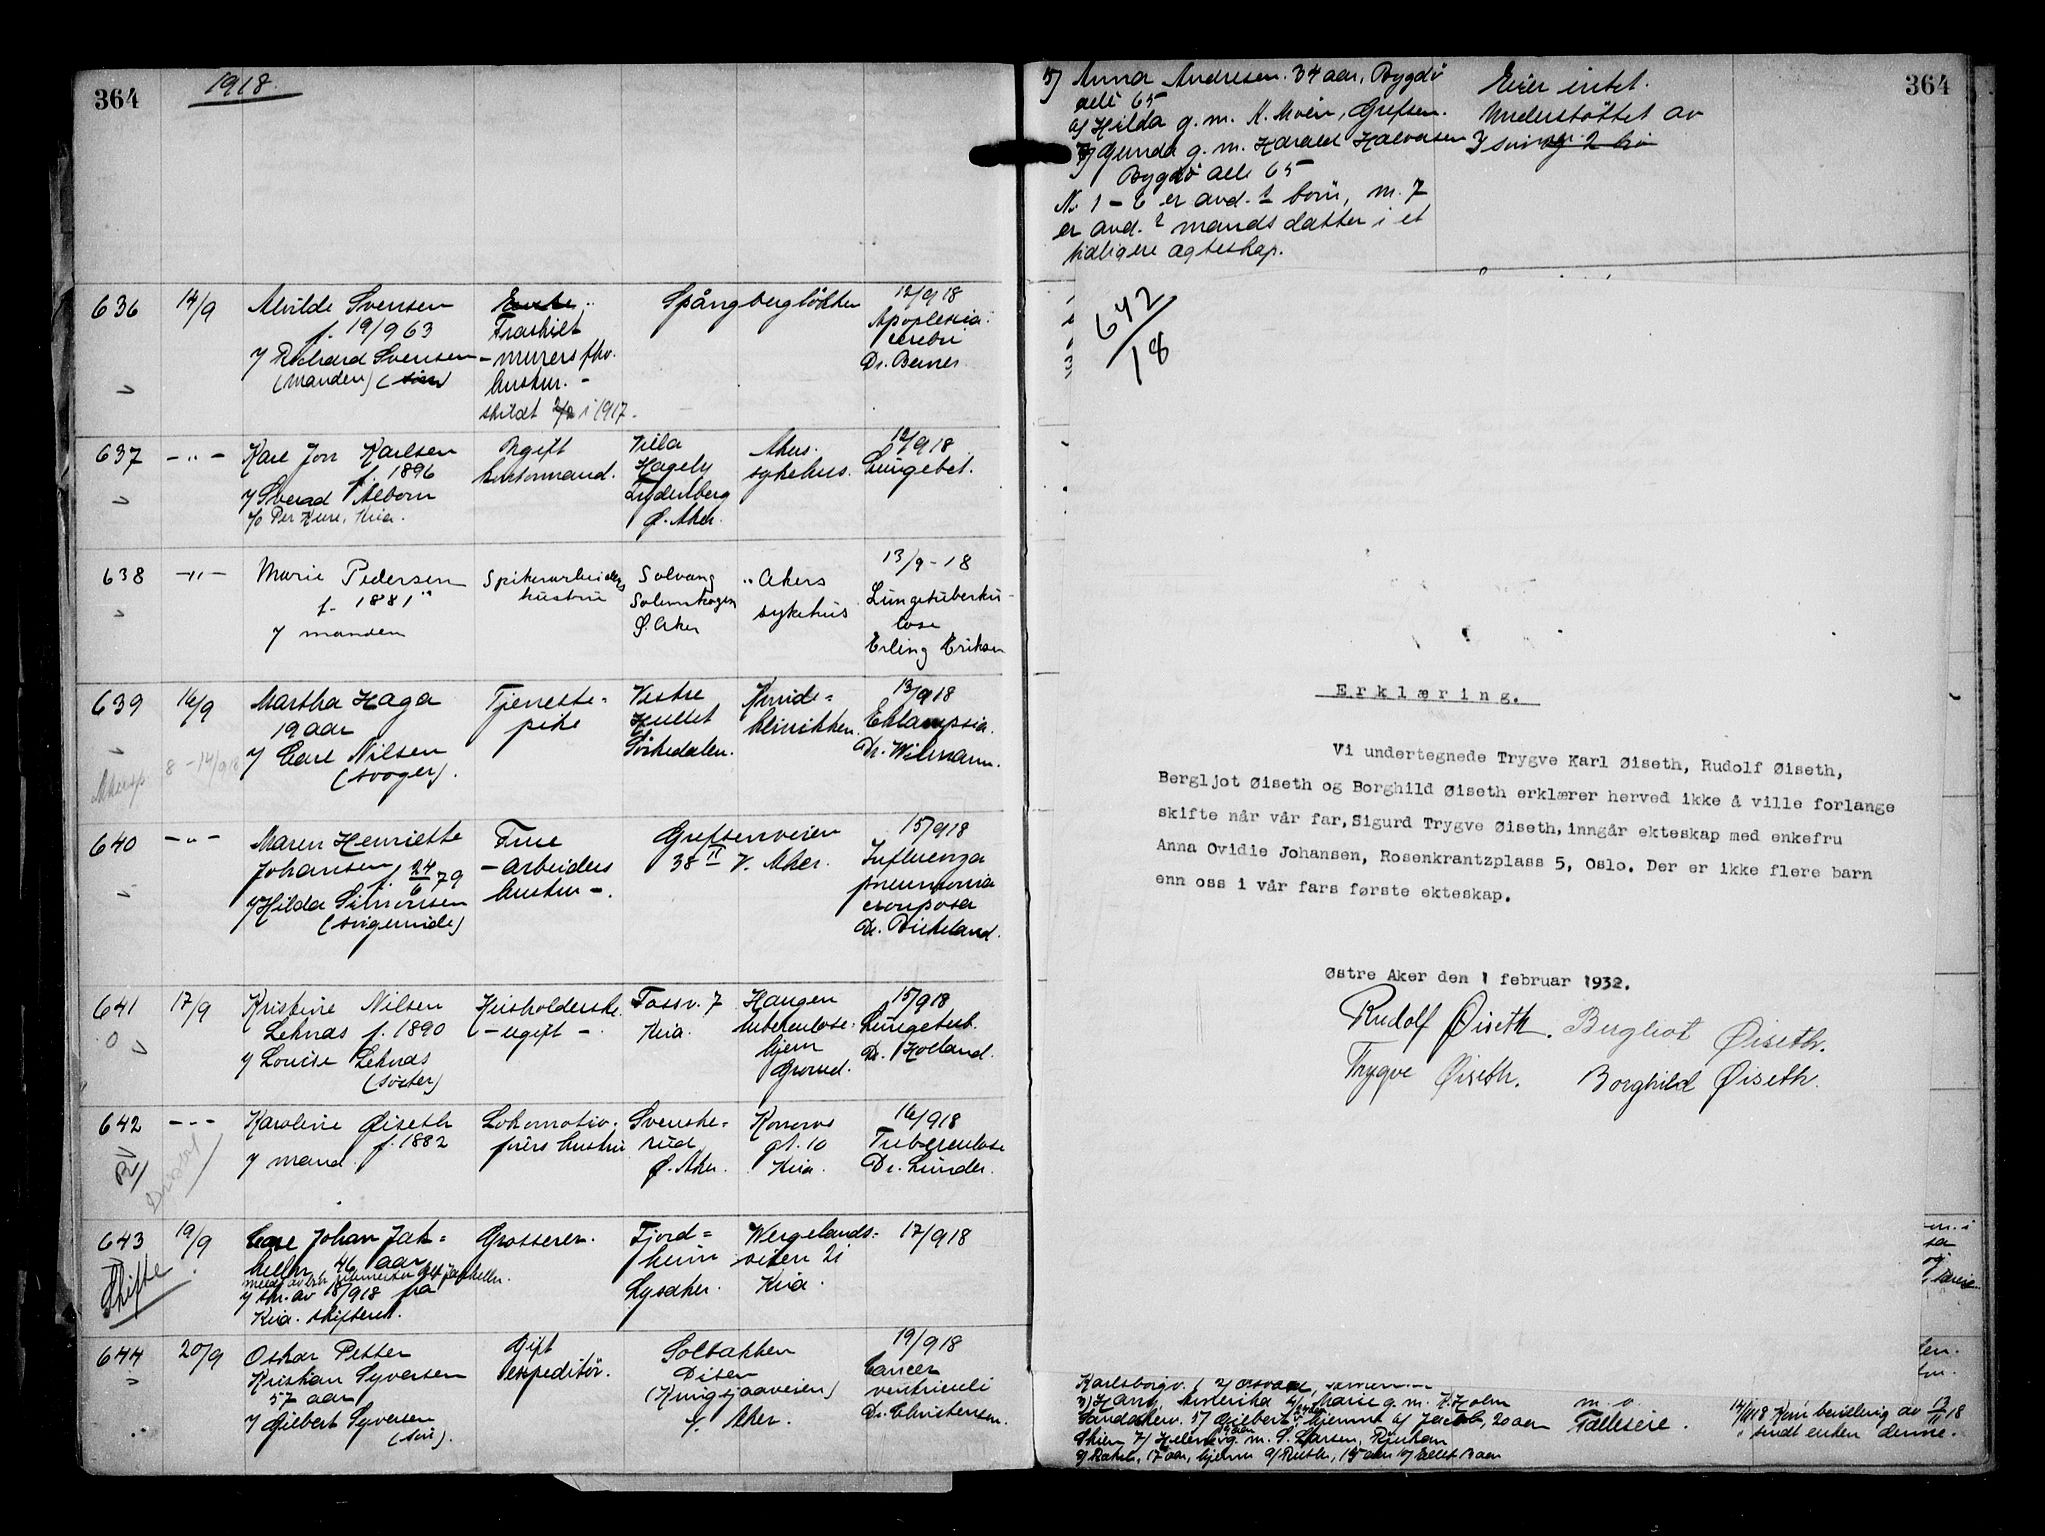 364
1918.
636 14/9 Alvilde Svensen
f. 19/9 63
Richard Svensen
(manden) (søn)
Fraskilt
- murers
hustru. -
skildt i 1917.
Spångbergløkken
12/9 18
Apoplexia
cerebri
Dr.
637 - " - Karl Jon Karlsen
f. 1896
Ugift
kontormand.
Villa
Hagely
Ø. Aker.
Akers
sykehus.
12/9 18
638 - " - Marie Pedersen
f. 1881
manden
Spikerarbeiders
hustru
Solvang
Ø. Aker
Akers
sykehus
13/9 - 18
Lungetuberku-
lose
Erling Eriksen
639 16/9 Martha Haga
19 aar
Carl Nilsen
(svoger).
8 - 14/9 18
Tjeneste-
pike
Vestre
Sørkedalen.
Kvinde-
klinikken.
13/9 18
Eklampsia.
Dr. Wilmann.
640 - " - Maren Henriette
Johansen f. 24/6 79
Hilda Simonsen
(svigerinde)
Frue
- Arbeiders
hustru -.
Grefsenveien
38 II V. Aker.
15/9 18
Influenza
pneumonia
crouposa
Dr. Birkeland.
641 17/9 Kristine Nilsen
Leknas f. 1890
Louise Leknas
(søster)
Husholderske
- ugift -.
Fossv. 7
Kria.
Haugen
tuberkulose-
hjem
Grorud.
15/9 18
Lungetub.
Dr. Holland.
642 - " - Karoline Øiseth
f. 1882
mand.
Lokomotiv-
førers hustru
Svenske-
rud
Ø. Aker.
Konows
gt. 10
Kria.
16/9 18
Tuberculose
Dr. Linder.
643 19/9 Carl Johan Jak-
helln, 46 aar
skr. av 18/9 18 fra
Kria. skifterett.
Skifte
Grosserer.
Fjord-
heim
Lysaker.
Wergelands-
veien 21
Kria.
17/9 18
644 20/9 Oskar Petter
Kristian Syversen
57 aar
Gilbert Syversen
(søn).
Gift
expeditør.
Solbakken
Disen
(Kongsjaaveien)
V. Aker.
19/9 18
Cancer
ventriculi
Dr. Christensen.
364
5) Anna Andresen. 34 aar, Bygdø
alle 65
6) Hilda g. m. A. Moen, Grefsen.
7) Gunda g. m. Harald Halvorsen
Bygdø alle 65
No 1 - 6 er avd. ? børn, m. 7
er avd. ? mands datter i et
tidligere ægteskap.
Eier intet.
Understøttet av
642
18
Erklæring.
Vi undertegnede Trygve Karl Øiseth, Rudolf Øiseth,
Bergljot Øiseth og Borghild Øiseth erklærer herved ikke å ville forlange
skifte når vår far, Sigurd Trygve Øiseth, inngår ekteskap med enkefru
Anna Ovidie Johansen, Rosenkrantzplass 5, Oslo. Der er ikke flere barn
enn oss i vår fars første ekteskap.
Østre Aker den 1 februar 1932.
Rudolf Øiseth. Bergliot Øiseth.
Trygve Øiseth. Borghild Øiseth.
Karlsborgv. 1 2)
3) Hans, Amerika 4) Marie g. m. H. Holm
Sandakerv. 5) Gilbert, hjemme 6) Jacob, 20 aar
Skien 7) Helene g. m. S. Larsen, Rjukan
8) Rakel, 17 aar, hjemme 9) Ruth, 15 aar 10) Ellet 13 aar
m. v.
Falleseie.
14/11 18 Kom bevilling av 13/11 18
sendt enken denne.